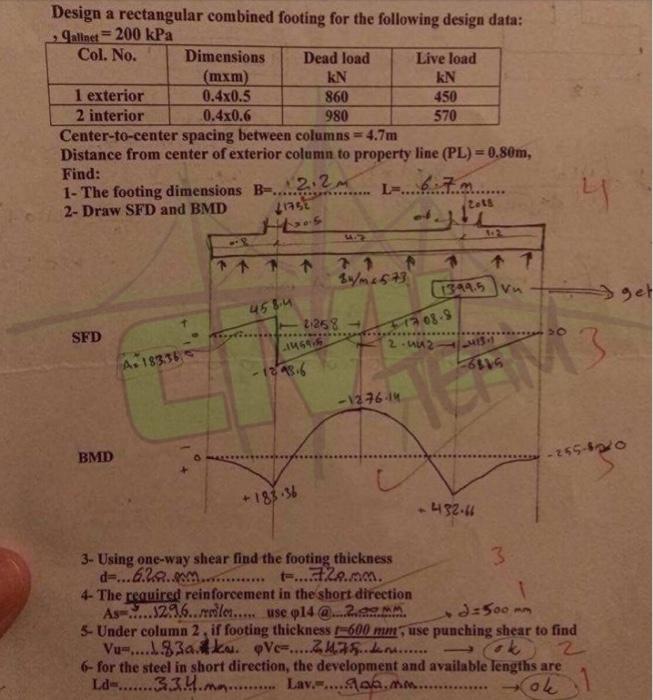 Design a rectangular combined footing for the following design data:
, qallnet = 200 kPa
Col. No. Dimensions (mxm) Dead load kN Live load kN
1 exterior 0.4x0.5 860 450
2 interior 0.4x0.6 980 570
Center-to-center spacing between columns = 4.7m
Distance from center of exterior column to property line (PL) = 0.80m,
Find:
1- The footing dimensions B=....2.2m.... L=...6.7m......
4
2- Draw SFD and BMD
↓1752
0.5
0.8
4.7
1.2
1399.5 Vu
458.4
2.258
1708.8
2.442
SFD
+
0
3
A=183.36
-1298.6
CIVIL
TEAM
-1276.14
BMD
-
0
+
+183.36
+432.66
3- Using one-way shear find the footing thickness
3
d=...620.mm............. t=...720.mm.
4- The required reinforcement in the short direction
1
As=....1296..... use φ14 @...200mm.
d=500 mm
5- Under column 2, if footing thickness t=600 mm, use punching shear to find
Vu=....1830.... φVc=....2475.kn...... → ok 2
6- for the steel in short direction, the development and available lengths are
Ld=.......334.mm........... Lav.=...900.mm........... → ok 1